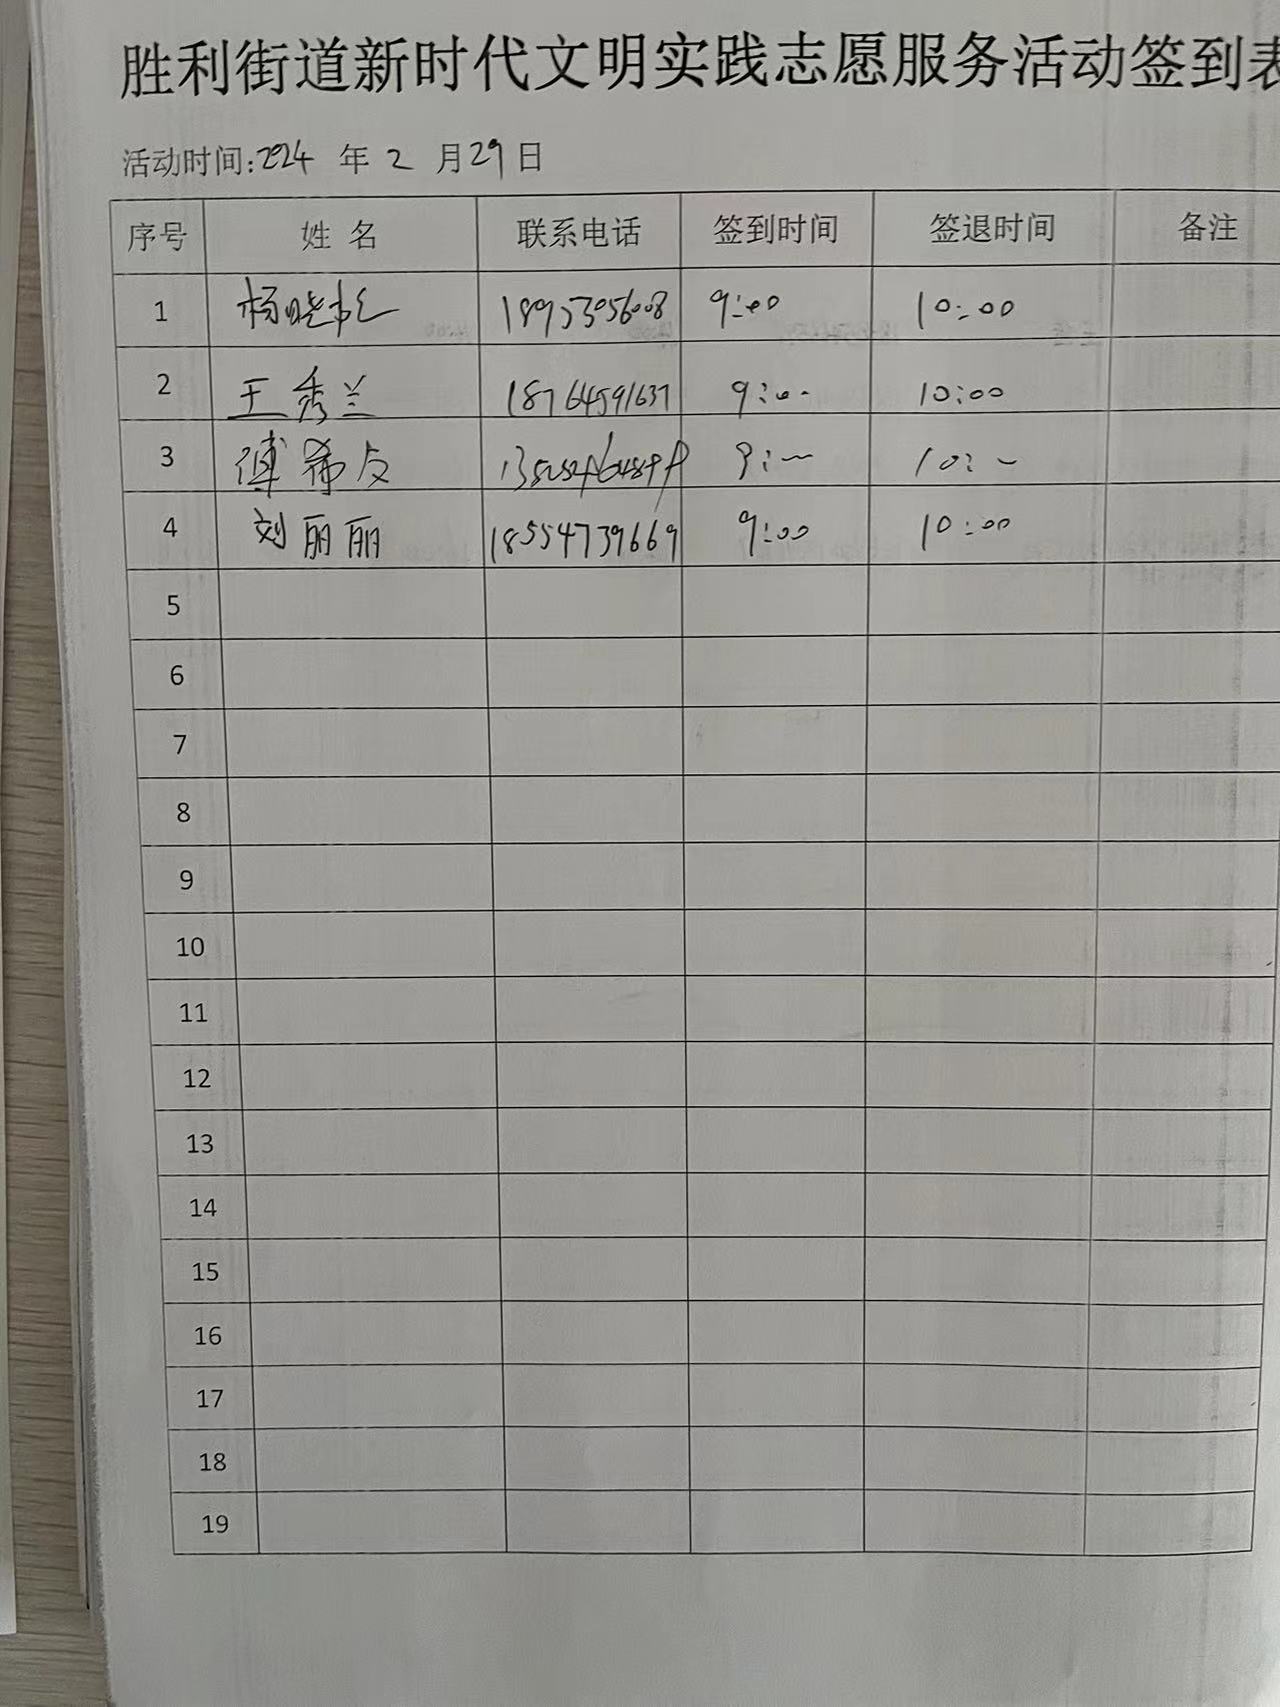 胜利街道新时代文明实践志愿服务活动签到表
活动时间:2024 年 2 月 29 日
序号 姓 名 联系电话 签到时间 签退时间 备注
1 杨晓 18953056008 9:00 10:00
2 王秀兰 18764591637 9:00 10:00
3 傅希友 9:00 10:00
4 刘丽丽 18554739669 9:00 10:00
5
6
7
8
9
10
11
12
13
14
15
16
17
18
19